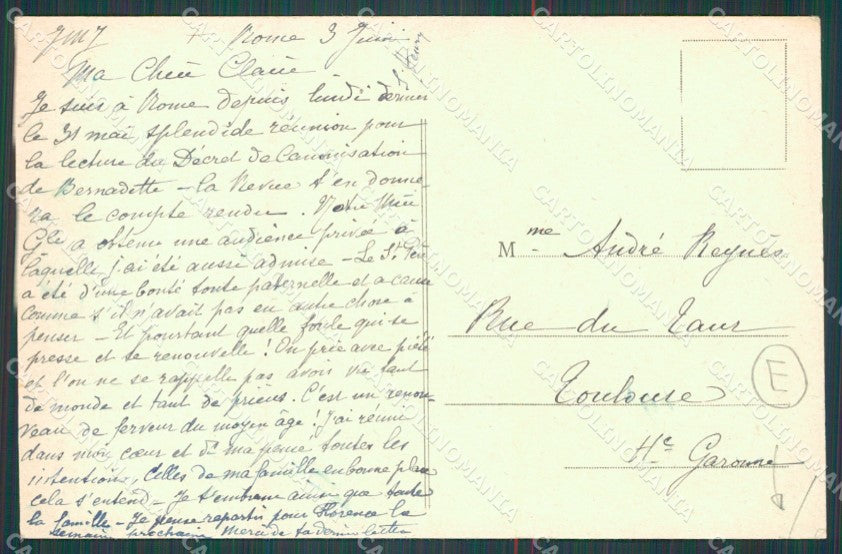 JMJ + Rome 3 Juin
Ma Chère Claire
Je suis à Rome depuis lundi dernier
le 31 mai splendide réunion pour
la lecture du Décret de Canonisation
de Bernadette – la Revue t'en donne-
ra le compte rendu. Notre Mère
Gle a obtenu une audience privée à
laquelle j'ai été aussi admise – Le St Père
a été d'une bonté toute paternelle et a causé
comme s'il n'avait pas eu autre chose à
penser – Et pourtant quelle foule qui se
presse et se renouvelle ! On prie avec piété
et l'on ne se rappelle pas avoir vu tant
de monde et tant de prières. C'est un renou-
veau de ferveur du moyen âge ! J'ai réuni
dans mon cœur et ds ma pensée toutes les
intentions, celles de ma famille en bonne place
cela s'entend – Je t'embrasse ainsi que toute
la famille – Je pense repartir pour Florence la
semaine prochaine Merci de ta dernière lettre
St Henry
Mme André Reynès
Rue du Taur
Toulouse
Hte Garonne
E
CARTOLINOMANIA